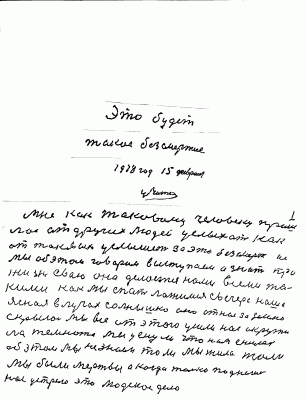 Это будет
такое безсмертие
1978 год 15 февраля
1
Мне как таковому человеку пришлося
от других людей услыхат как
от таких услышет за это безсмерт
мы об этом говорим выступаем а знат про
жизн сваю она делается нами всеми та-
кими как мы спат ложимся с вечера наше
ясная в лучах солнышко оно от нас за землю
скрылос мы все от этого ушли нас окружи
ла темнота мы уснули что нам снилос
об этом мы не знали то ли мы жили то ли
мы были мертвы а когда только поднялис
нас устрело это людское дело